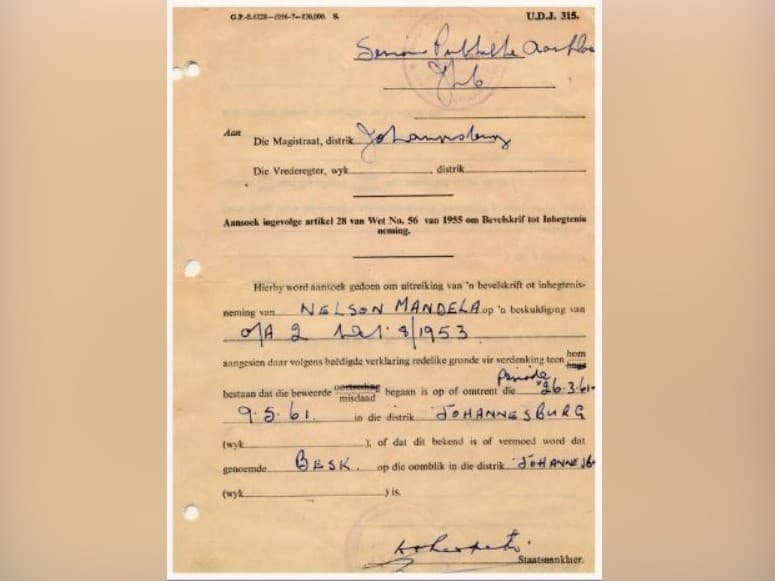 G.P.-S.6328—1956-7—130,000. S. U.D.J. 315.
Senior Publieke Aanklaer
Jhb
Aan
Die Magistraat, distrik Johannesburg
Die Vrederegter, wyk , distrik
Aansoek ingevolge artikel 28 van Wet No. 56 van 1955 om Bevelskrif tot Inhegtenis
neming.
Hierby word aansoek gedoen om uitreiking van 'n bevelskrift ot inhegtenis-
neming van NELSON MANDELA op 'n beskuldiging van
o/A 2 Wet 8/1953
aangesien daar volgens beëdigde verklaring redelike gronde vir verdenking teen hom
haar
bestaan dat die beweerde oortreding misdaad begaan is op of omtrent die periode 26.3.61-
9.5.61. in die distrik JOHANNESBURG
(wyk ), of dat dit bekend is of vermoed word dat
genoemde BESK. op die oomblik in die distrik JOHANNESB-
(wyk ) is.
Staatsanklaer.